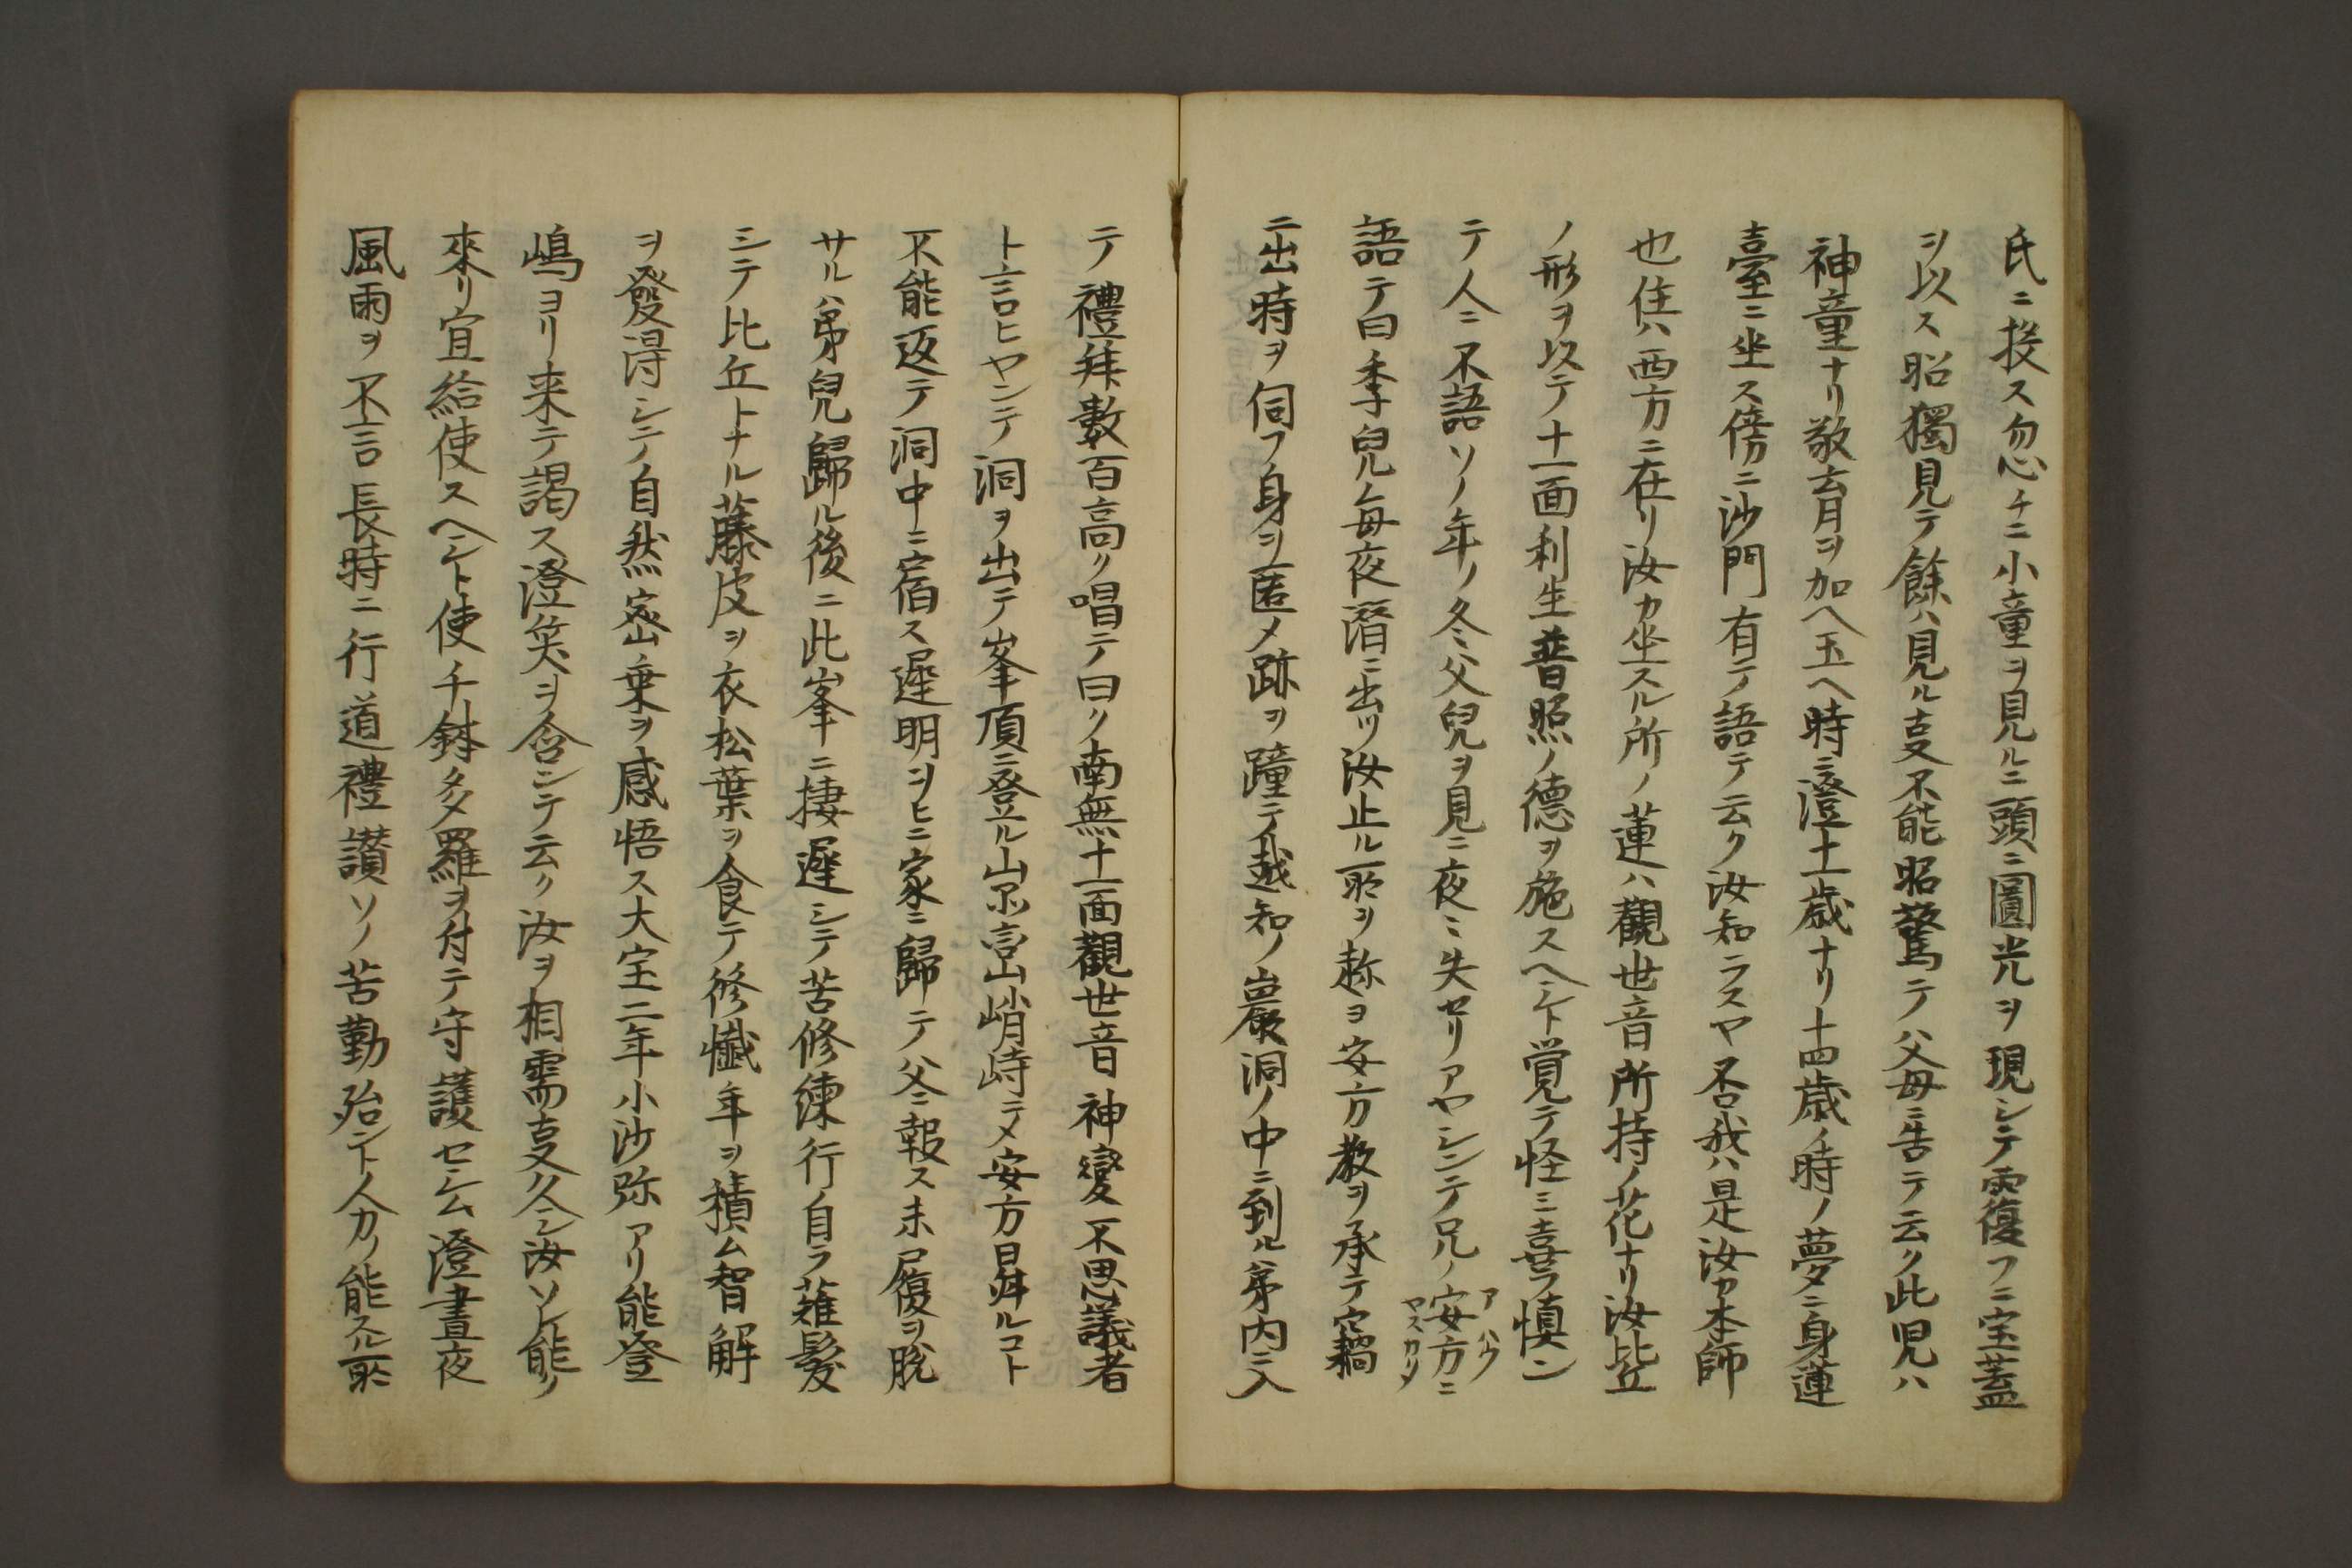 氏ニ投ス忽チニ小童ヲ見ルニ頭ニ圓光ヲ現シテ覆フニ宝蓋
ヲ以ス昭獨見テ餘ハ見ル叓不能昭驚テ父母ニ告テ云ク此児ハ
神童ナリ敬育ヲ加ヘ玉ヘ時ニ澄十一歳ナリ十四歳ノ時ノ夢ニ身蓮
臺ニ坐ス傍ニ沙門有テ語テ云ク汝知ラスヤ否我ハ是汝カ本師
也住ハ西方ニ在リ汝カ坐スル所ノ蓮ハ觀世音所持ノ花ナリ汝比丘
ノ形ヲ以テ十一面利生普照ノ德ヲ施スヘシト覚テ怪ミ喜フ慎ン
テ人ニ不語ソノ年ノ冬ミ父兒ヲ見ニ夜ミ失セリアヤシンテ兄ノ安方ニ
アハウ
ヤスカタ
語テ曰季兒毎夜潜ニ出ツ汝止ル所ヲ尋ヨ安方教ヲ承テ穴
ニ出時ヲ伺フ身ヲ匿メ跡ヲ蹱テ越知ノ巖洞ノ中ニ到ル弟内ニ入
テ禮拜數百高ク唱テ曰ク南無十一面觀世音神變不思議者
ト言ヒヤンテ洞ヲ出テ峯頂ニ登ル山峭峙テメ安方昇ルコト
不能返テ洞中ニ宿ス遲明ツヒニ家ニ歸テ父ニ報ス未履ヲ脱
サルハ弟兒歸ル後ニ此峯ニ捿遲シテ苦修練行自ラ薙髮
シテ比丘トナル藤皮ヲ衣松葉ヲ食テ修懺年ヲ積ム智解
ヲ發得シテ自然密乗ヲ感悟ス大宝二年小沙弥アリ能登
嶋ヨリ来テ謁ス澄笑ヲ含ンテ云ク汝ヲ相需叓久シ汝ソレ能ク
來リ宜給使スヘシト使チ鉢多羅ヲ付テ守護セシム澄晝夜
風雨ヲ不言長時ニ行道禮讃ソノ苦勤殆ント人力ノ能スル所